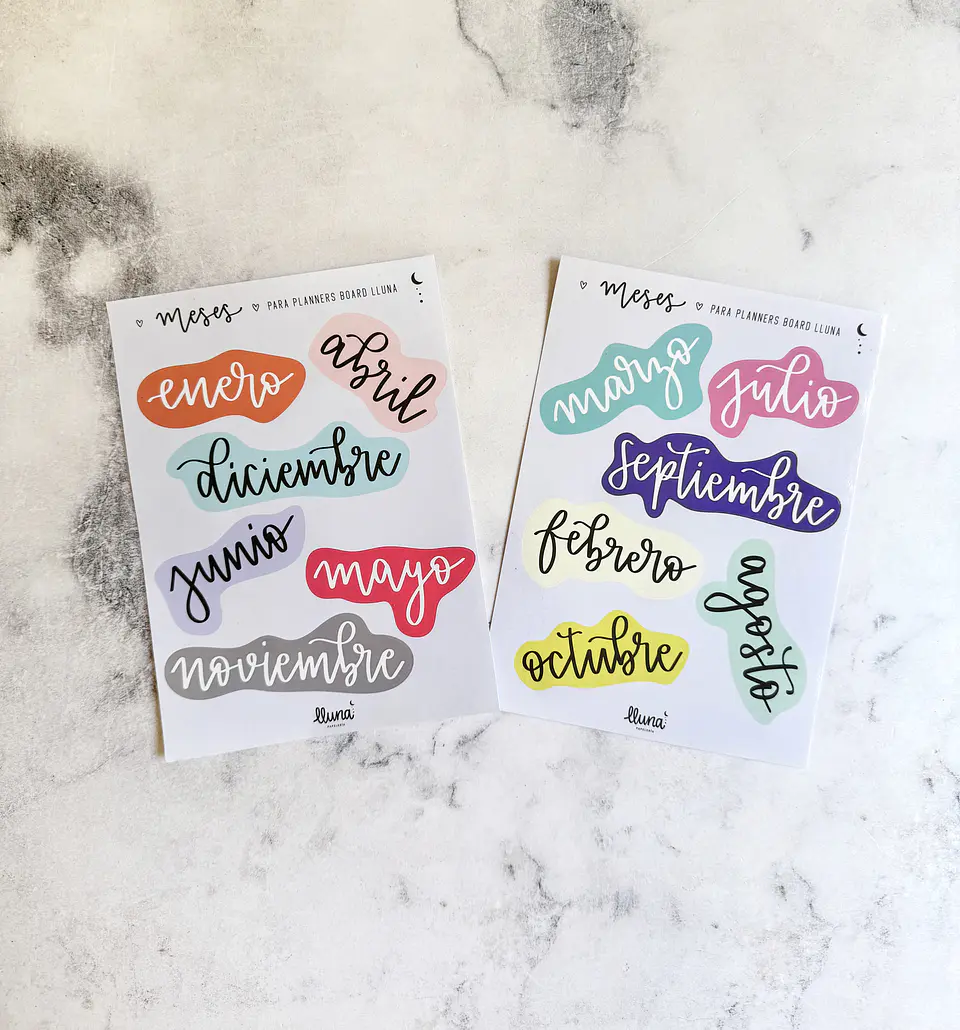 meses PARA PLANNERS BOARD LLUNA
enero
abril
diciembre
junio
mayo
noviembre
lluna
PAPELERÍA
meses PARA PLANNERS BOARD LLUNA
marzo
julio
septiembre
febrero
agosto
octubre
lluna
PAPELERÍA